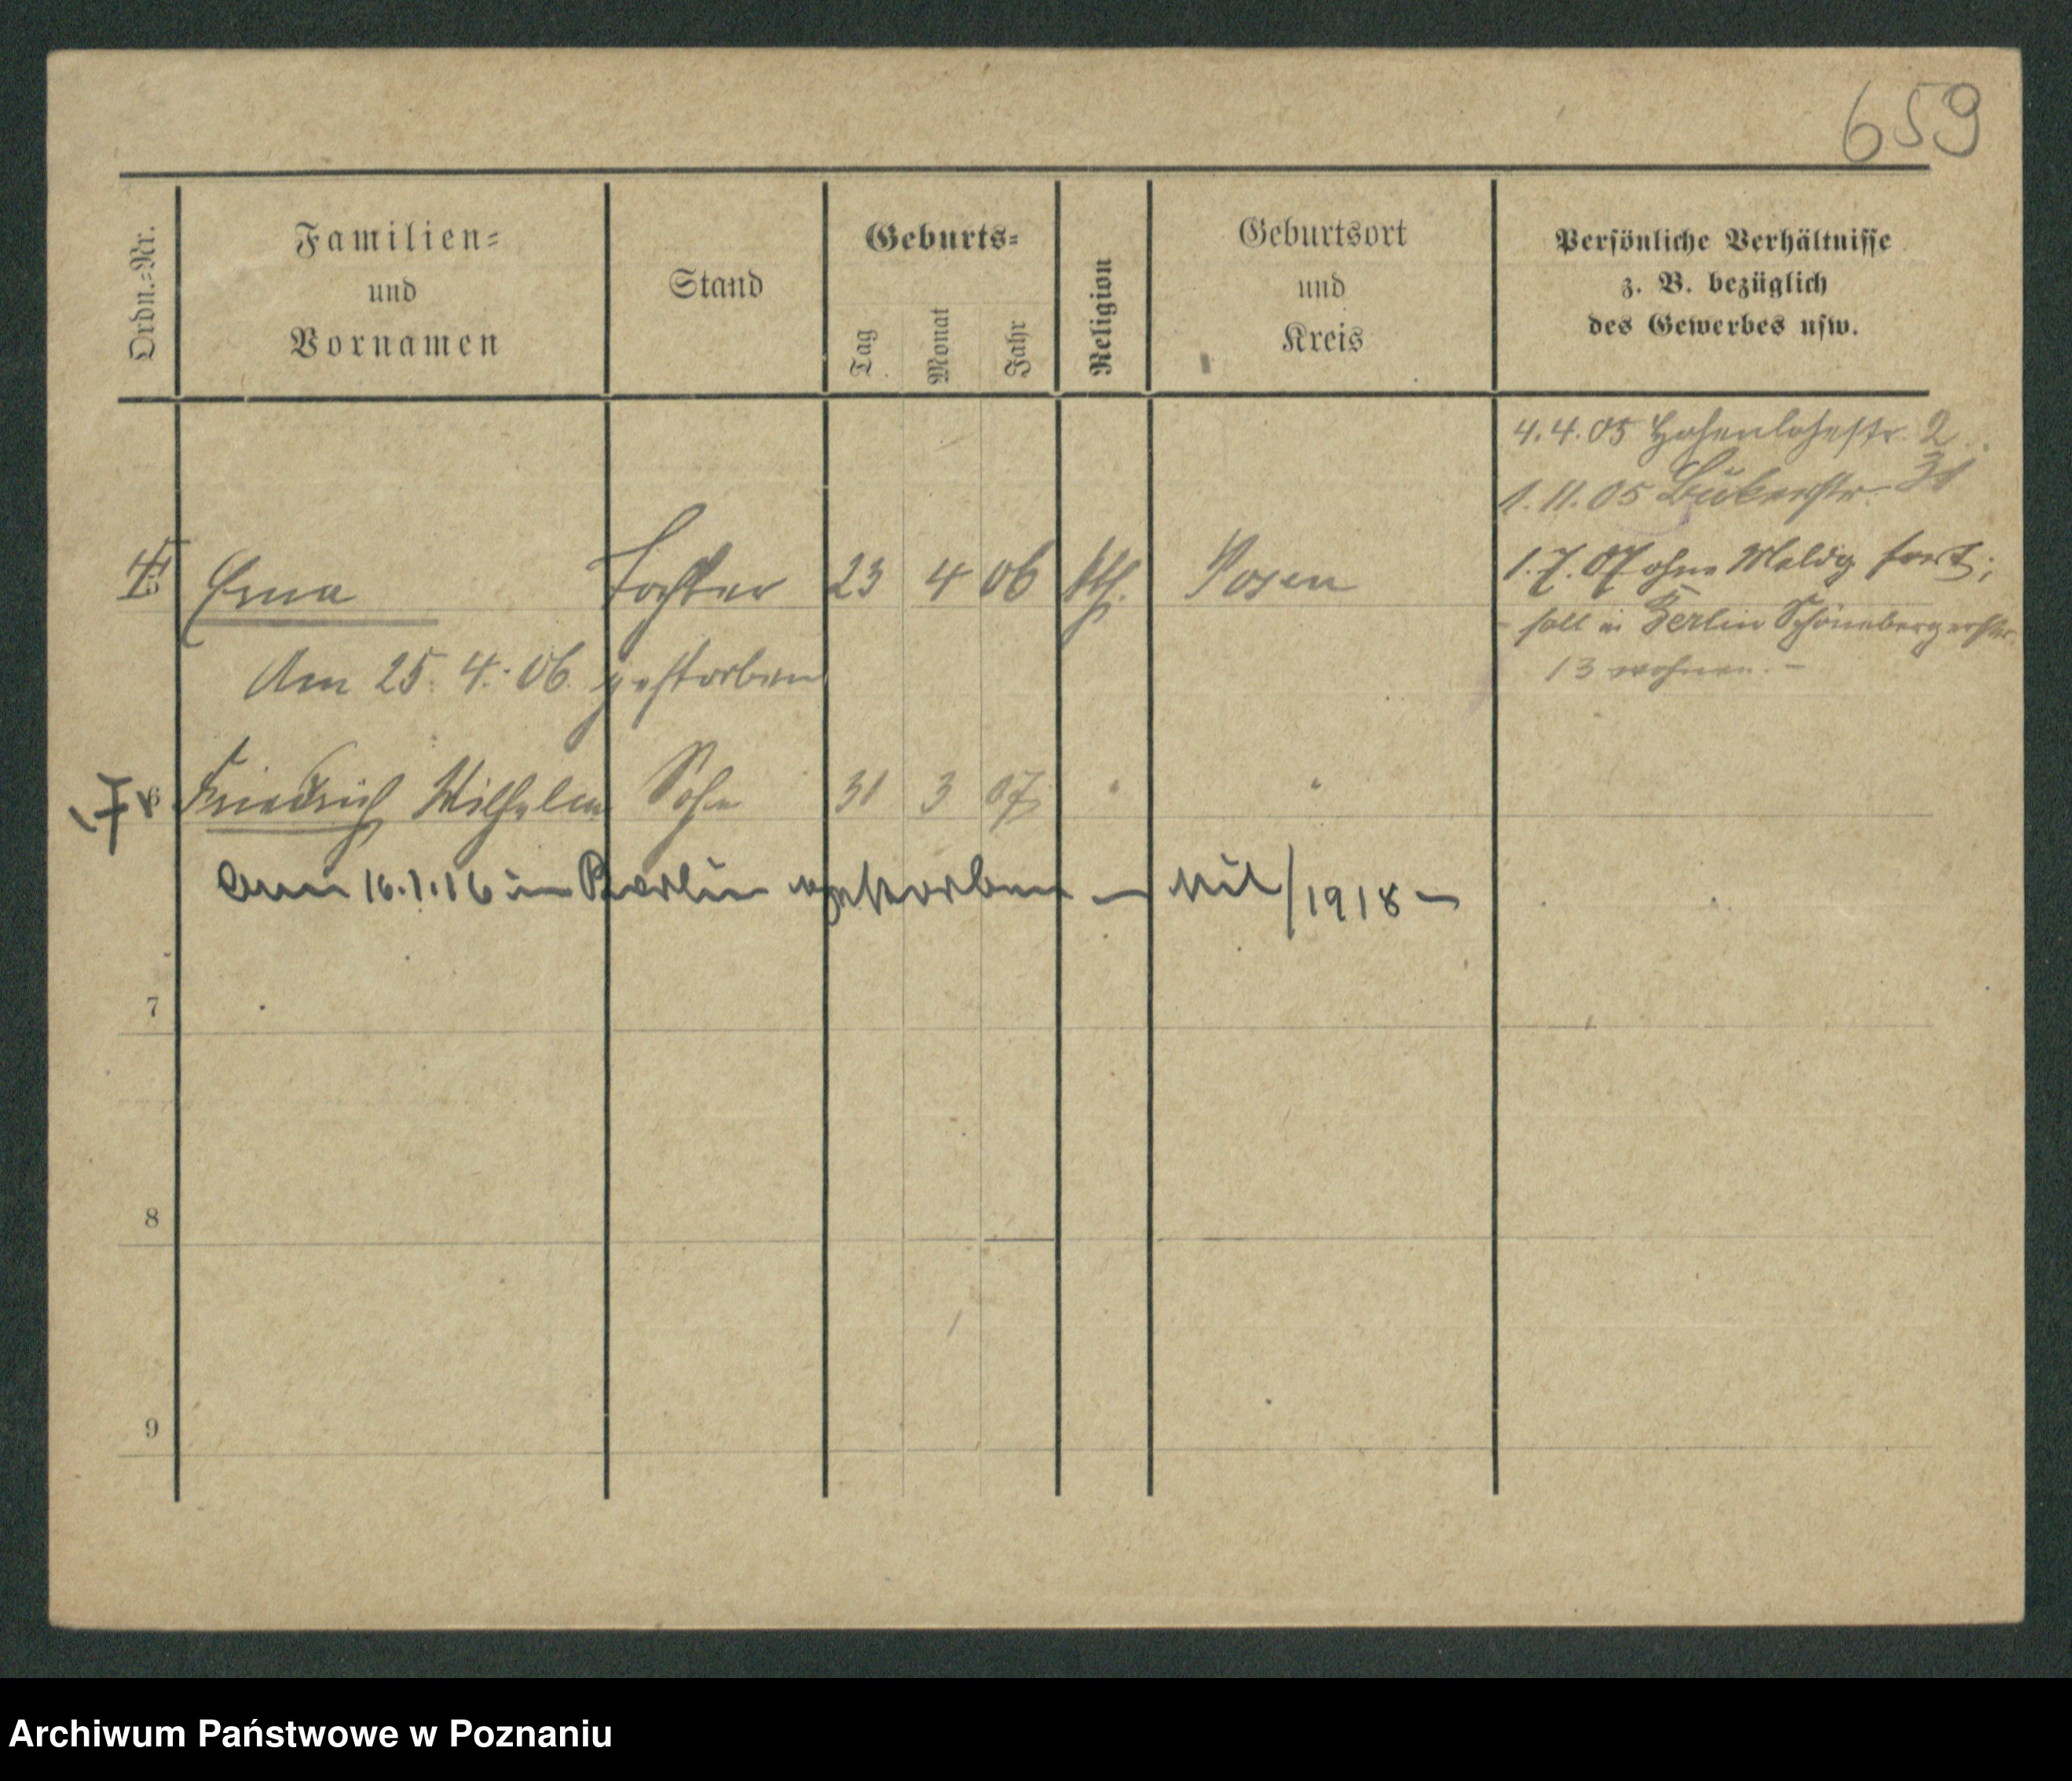 659
Ordn.-Nr.
Familien-
und
Vornamen
Stand
Geburts-
Tag
Monat
Jahr
Religion
Geburtsort
und
Kreis
Persönliche Verhältnisse
z. B. bezüglich
des Gewerbes usw.
4.4.05 Hohenlohestr. 2
1.11.05 Bukerstr. 31
1.7.07 ohne Meldg fort;
soll in Berlin Schönebergerstr.
13 wohnen. -
5 Erna Tochter 23 4 06 kth. Posen
Am 25. 4. 06. gestorben
6 Friedrich Wilhelm Sohn 31 3 07 " "
am 16.1.16 in Berlin gestorben – /1918 –
7
8
9
Archiwum Państwowe w Poznaniu